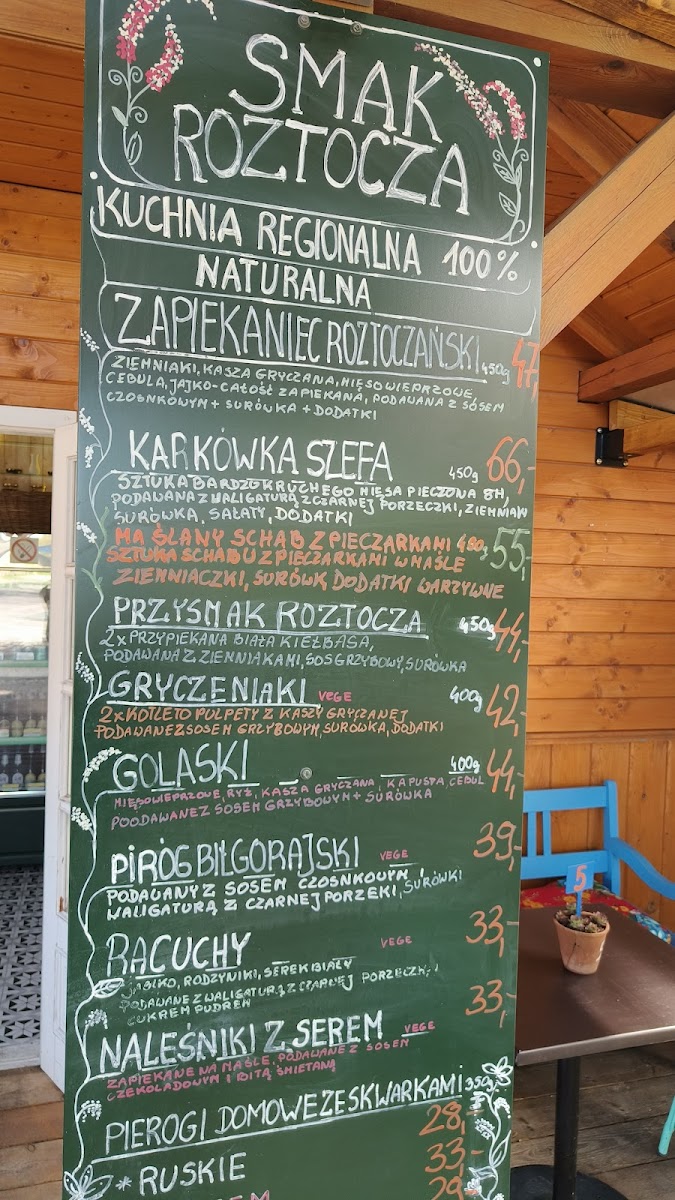 SMAK
ROZTOCZA
KUCHNIA REGIONALNA 100%
NATURALNA
ZAPIEKANIEC ROZTOCZAŃSKI 450g 47,-
ZIEMNIAKI, KASZA GRYCZANA, MIĘSO WIEPRZOWE,
CEBULA, JAJKO-CAŁOŚĆ ZAPIEKANA, PODAWANA Z SOSEM
CZOSNKOWYM + SURÓWKA + DODATKI
KARKÓWKA SZEFA 450g 66,-
SZTUKA BARDZO KRUCHEGO MIĘSA PIECZONA 8H,
PODAWANA Z WALIGATURĄ Z CZARNEJ PORZECZKI, ZIEMNIAKI
SURÓWKA, SAŁATY, DODATKI
MAŚLANY SCHAB Z PIECZARKAMI 450g 55,-
SZTUKA SCHABU Z PIECZARKAMI W MAŚLE
ZIEMNIACZKI, SURÓWK, DODATKI WARZYWNE
PRZYSMAK ROZTOCZA 450g 44,-
2x PRZYPIEKANA BIAŁA KIEŁBASA,
PODAWANA Z ZIEMNIAKAMI, SOS GRZYBOWY, SURÓWKA
GRYCZENIAKI VEGE 400g 42,-
2x KOTLETO PULPETY Z KASZY GRYCZANEJ
PODAWANE Z SOSEM GRZYBOWYM, SURÓWKA, DODATKI
GOLASKI 400g 44,-
MIĘSO WIEPRZOWE, RYŻ, KASZA GRYCZANA, KAPUSTA, CEBUL
POODAWANE Z SOSEM GRZYBOWYM + SURÓWKA
PIRÓG BIŁGORAJSKI VEGE 39,-
PODAWANY Z SOSEM CZOSNKOWYM,
WALIGATURĄ Z CZARNEJ PORZEKI, SURÓWKI
RACUCHY VEGE 33,-
JABŁKO, RODZYNIKI, SEREK BIAŁY
PODAWANE Z WALIGATURĄ Z CZARNEJ PORZECZKI
CUKREM PUDREM
NALEŚNIKI Z SEREM VEGE 33,-
ZAPIEKANE NA MAŚLE, PODAWANE Z SOSEM
CZEKOLADOWYM I BITĄ ŚMIETANĄ
PIEROGI DOMOWE ZE SKWARKAMI 350g
28,-
* RUSKIE 33,-
29,-
5